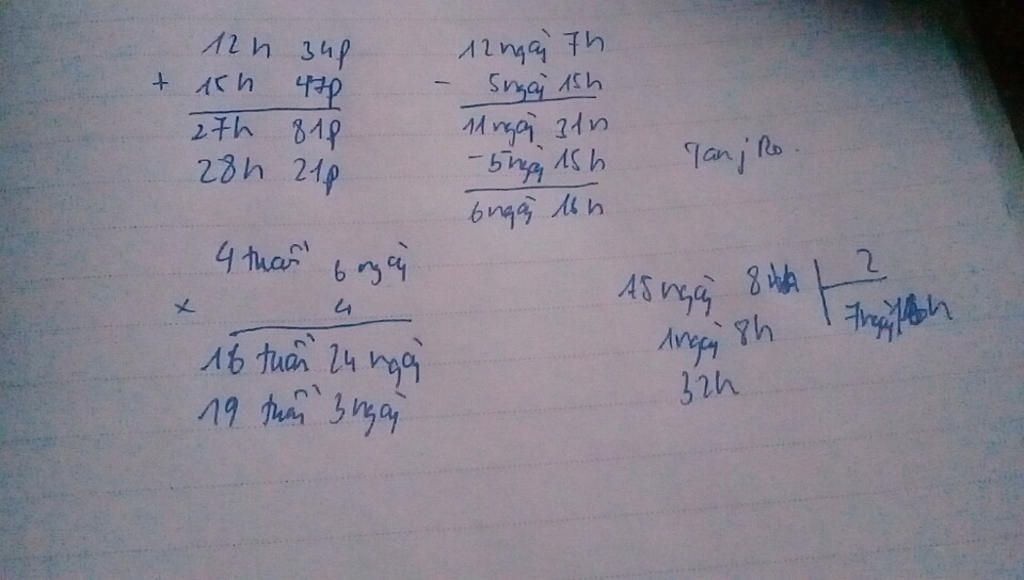 12h 34p
+ 15h 47p
27h 81p
28h 21p
12ngày 7h
- 5ngày 15h
11ngày 31h
- 5ngày 15h
6ngày 16h
4 tuần 6 ngày
× 4
16 tuần 24 ngày
19 tuần 3ngày
15ngày 8h 2
1ngày 8h 7ngày 16h
32h